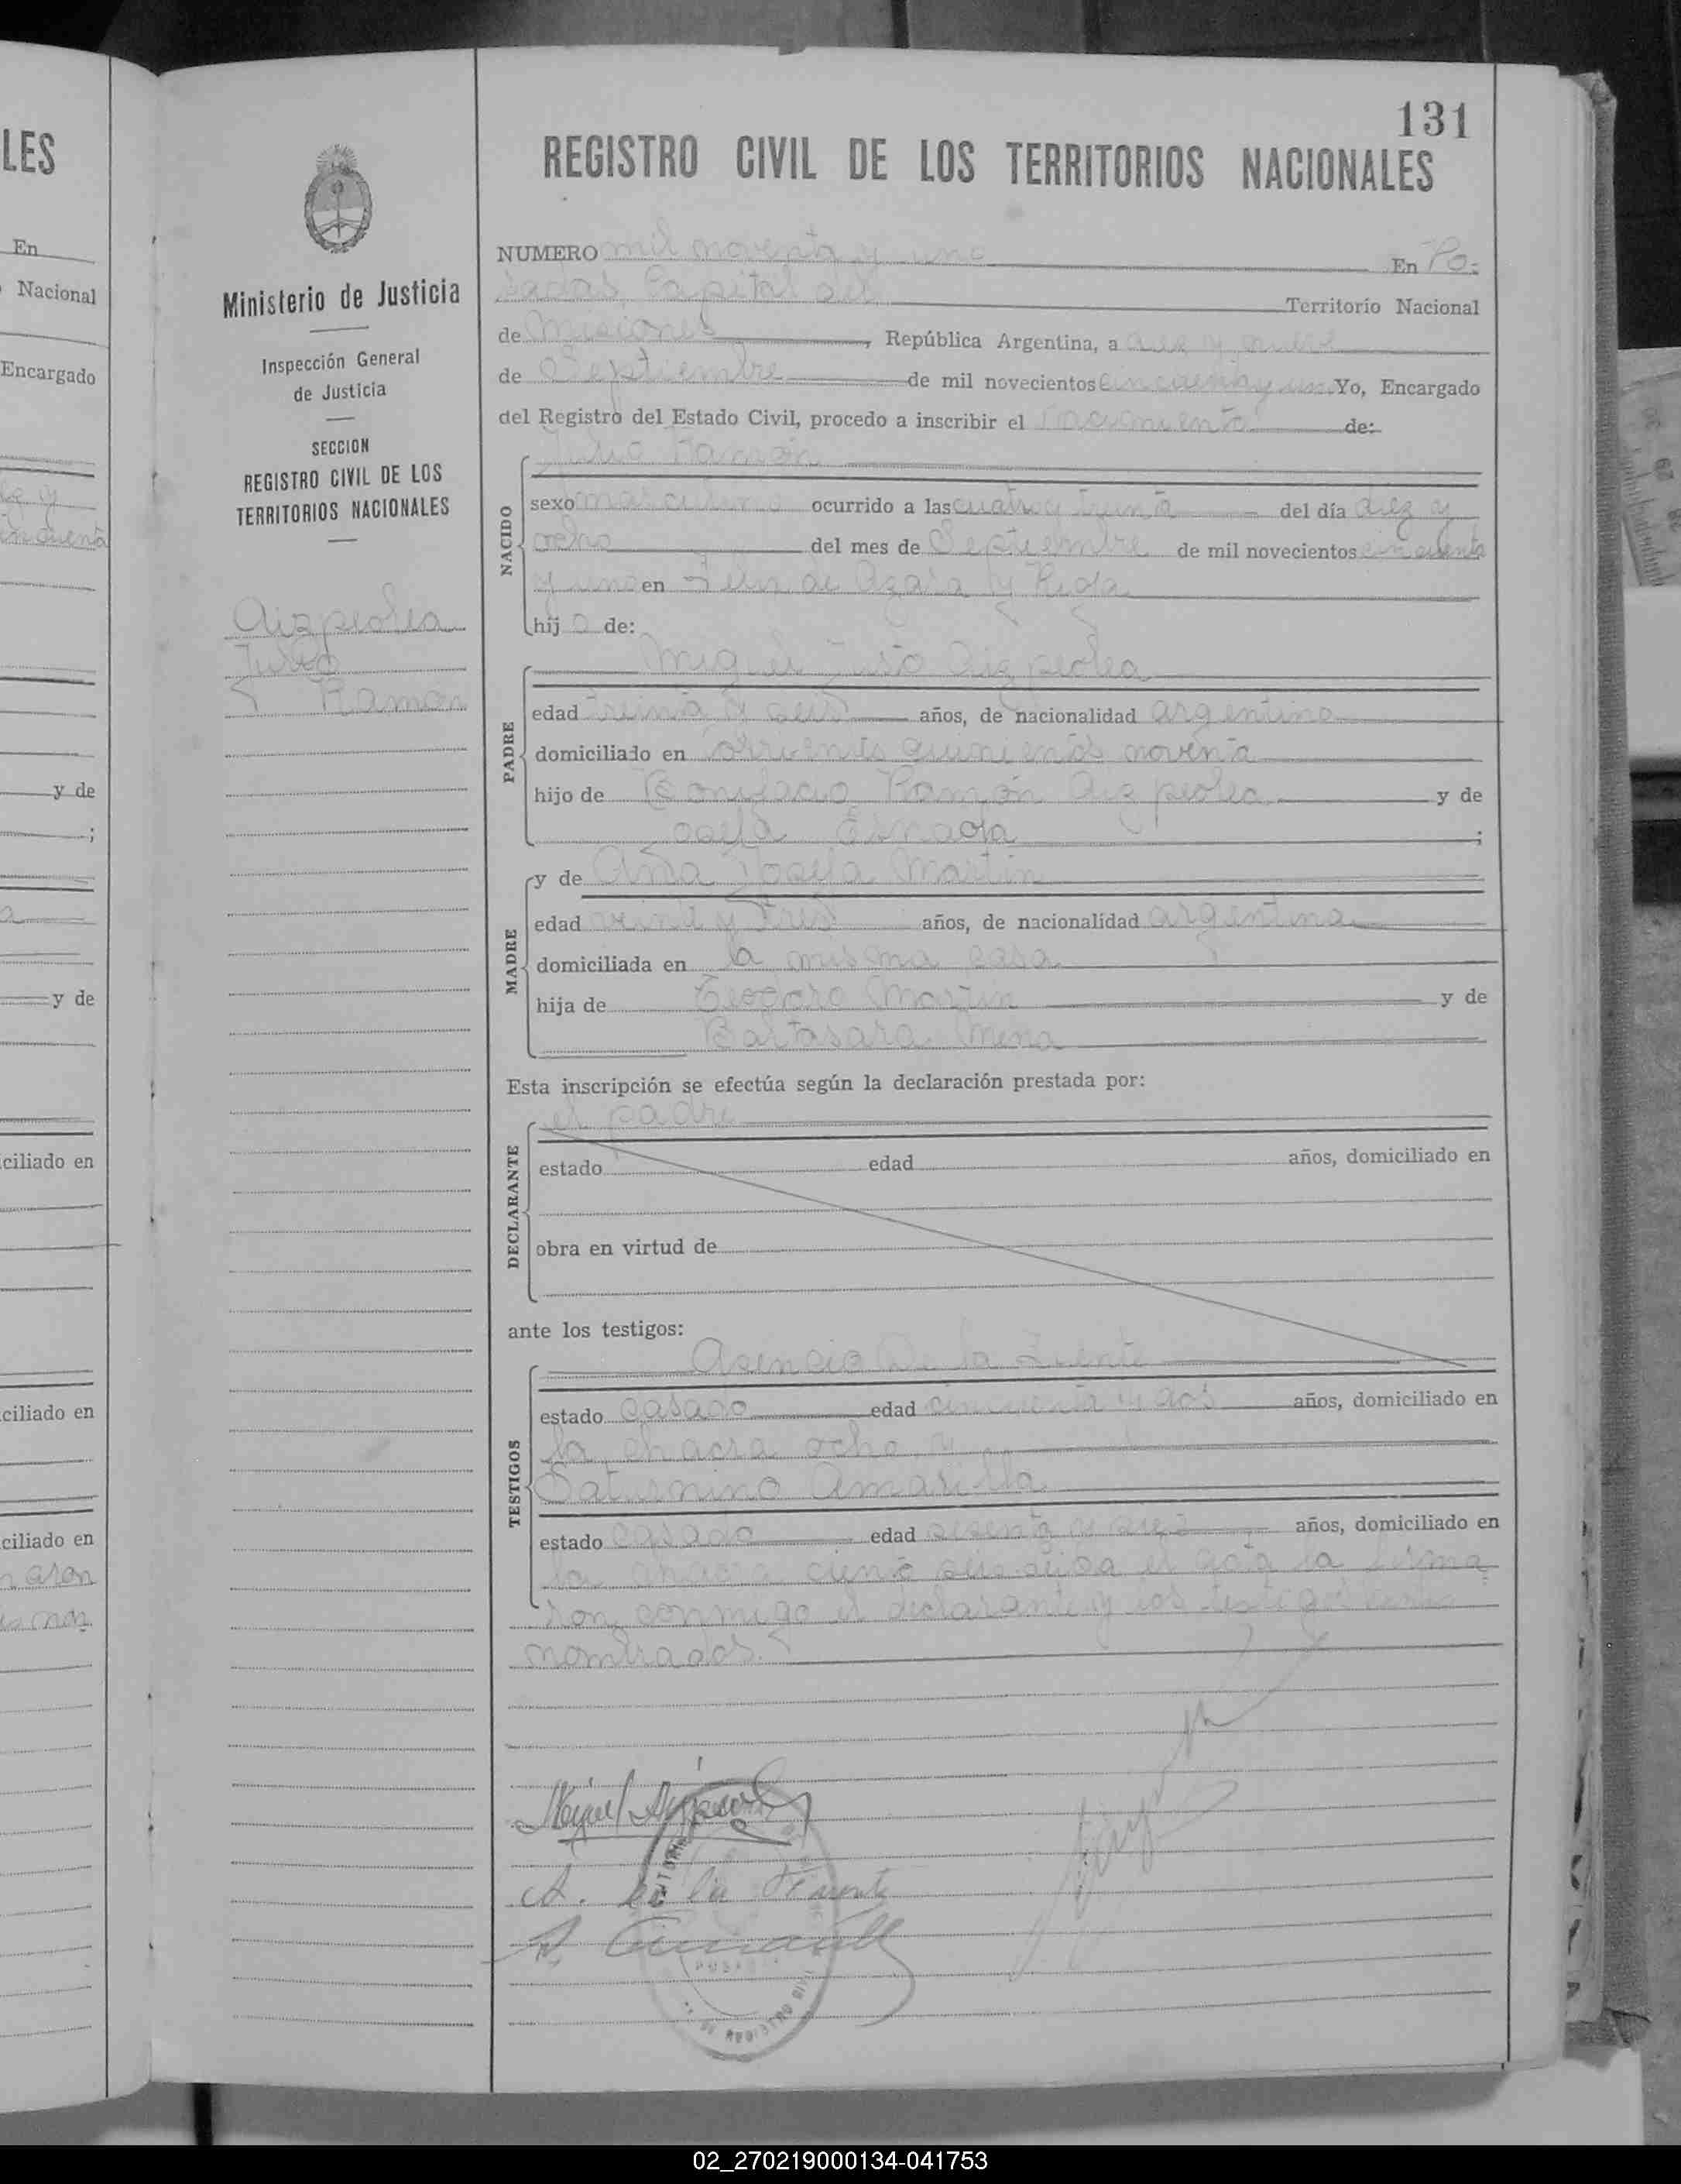 LES
En
Nacional
Encargado
y de
;
y de
ciliado en
ciliado en
ciliado en
Ministerio de Justicia
Inspección General
de Justicia
SECCION
REGISTRO CIVIL DE LOS
TERRITORIOS NACIONALES
Aizpeolea
Julio
Ramon
131
REGISTRO CIVIL DE LOS TERRITORIOS NACIONALES
NUMERO mil noventa y uno En Po-
sadas, Capital del Territorio Nacional
de Misiones, República Argentina, a diez y nueve
de Septiembre de mil novecientos cincuenta y uno Yo, Encargado
del Registro del Estado Civil, procedo a inscribir el nacimiento de:
NACIDO
Julio Ramón
sexo masculino ocurrido a las cuatro y treinta del día diez y
ocho del mes de Septiembre de mil novecientos cincuenta
y uno en Felix de Azara y Rioja
hijo de:
PADRE
Miguel Justo Aizpeolea
edad treinta y seis años, de nacionalidad argentino
domiciliado en Corrientes quinientos noventa
hijo de Bonifacio Ramón Aizpeolea y de
;
MADRE
y de Ana Josefa Martin
edad veinte y tres años, de nacionalidad argentina
domiciliada en la misma casa
hija de Teodoro Martin y de
Baltasara Mena
Esta inscripción se efectúa según la declaración prestada por:
DECLARANTE
el padre
estado edad años, domiciliado en
obra en virtud de
ante los testigos:
TESTIGOS
Asencio De la Fuente
estado casado edad cincuenta y dos años, domiciliado en
la chacra ocho y
Saturnino Amarilla
estado casado edad años, domiciliado en
la chacra ciento el acta la firma
ron conmigo el declarante y los testigos
nombrados.
Miguel Aizpeolea
A. de la Fuente
S. Amarilla
02_270219000134-041753